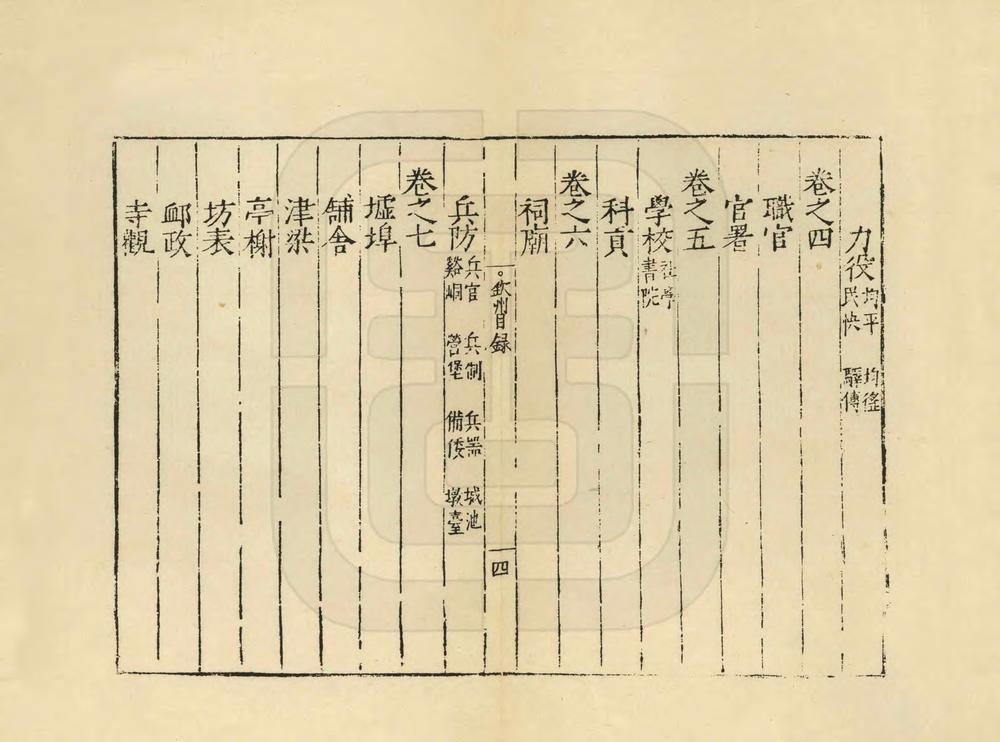 力役 均平 民快 均徭 驛傳
卷之四
職官
官署
卷之五
學校 社學 書院
科貢
卷之六
祠廟
欽州目録
四
兵防 兵官 谿峒 兵制 營堡 兵器 備倭 城池 墩臺
卷之七
墟埠
舖舍
津梁
亭榭
坊表
䘏政
寺觀